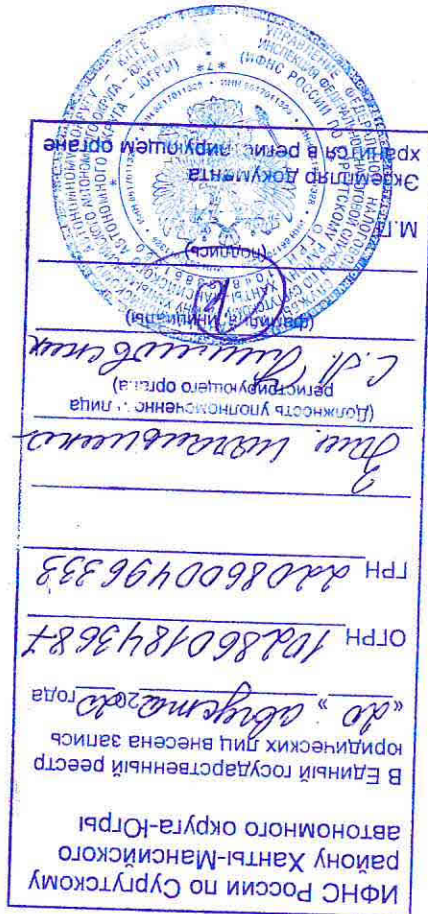 ИФНС России по Сургутскому
району Ханты-Мансийского
автономного округа-Югры
В Единый государственный реестр
юридических лиц внесена запись
«20» августа 2020 года
ОГРН 1028601843687
ГРН 2208600496333
Зам. начальника
(Должность уполномоченного лица
регистрирующего органа)
С.А.
(фамилия, инициалы)
(подпись)
М.П.
Экземпляр документа
хранится в регистрирующем органе